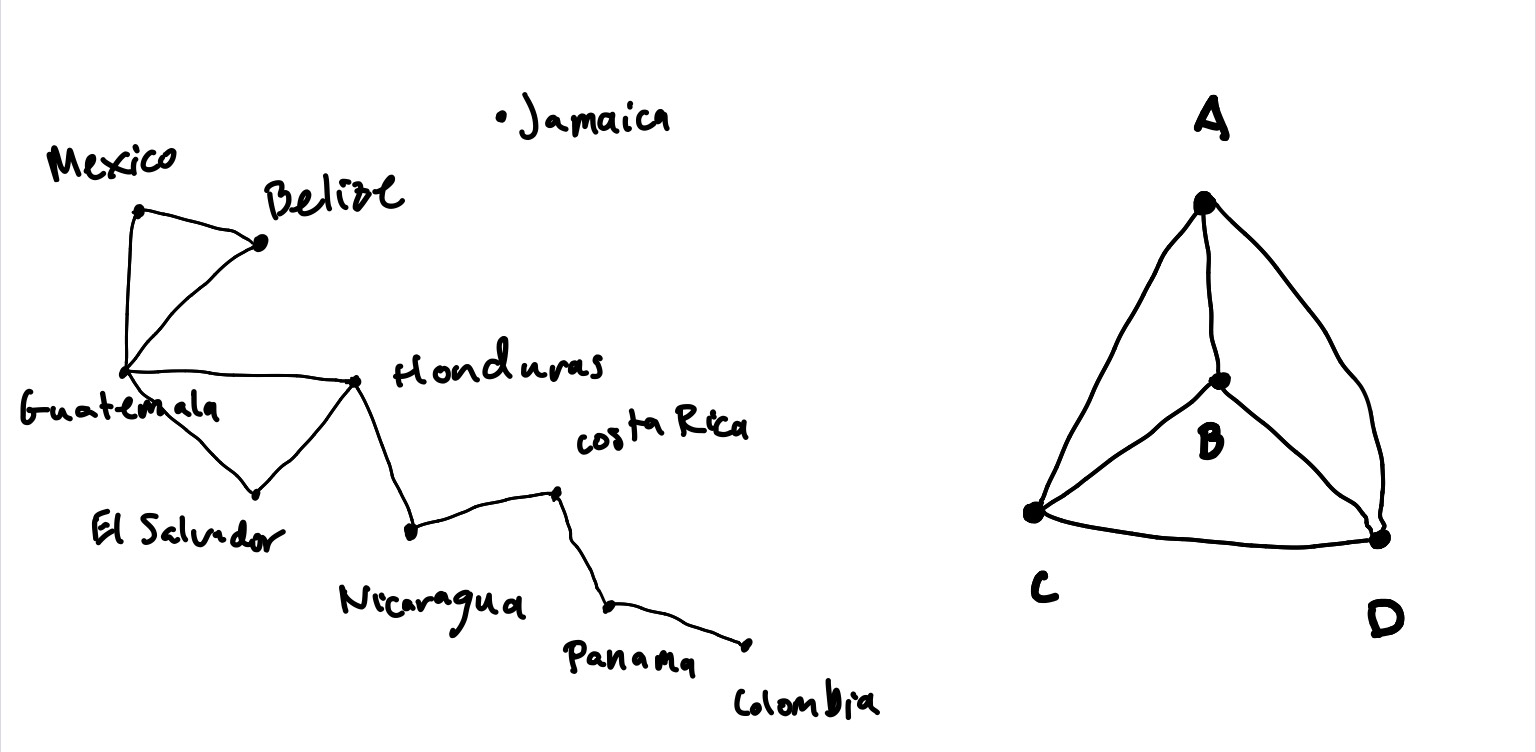 Jamaica
Mexico
Belize
Guatemala
Honduras
costa Rica
El Salvador
Nicaragua
Panama
Colombia
A
B
C
D